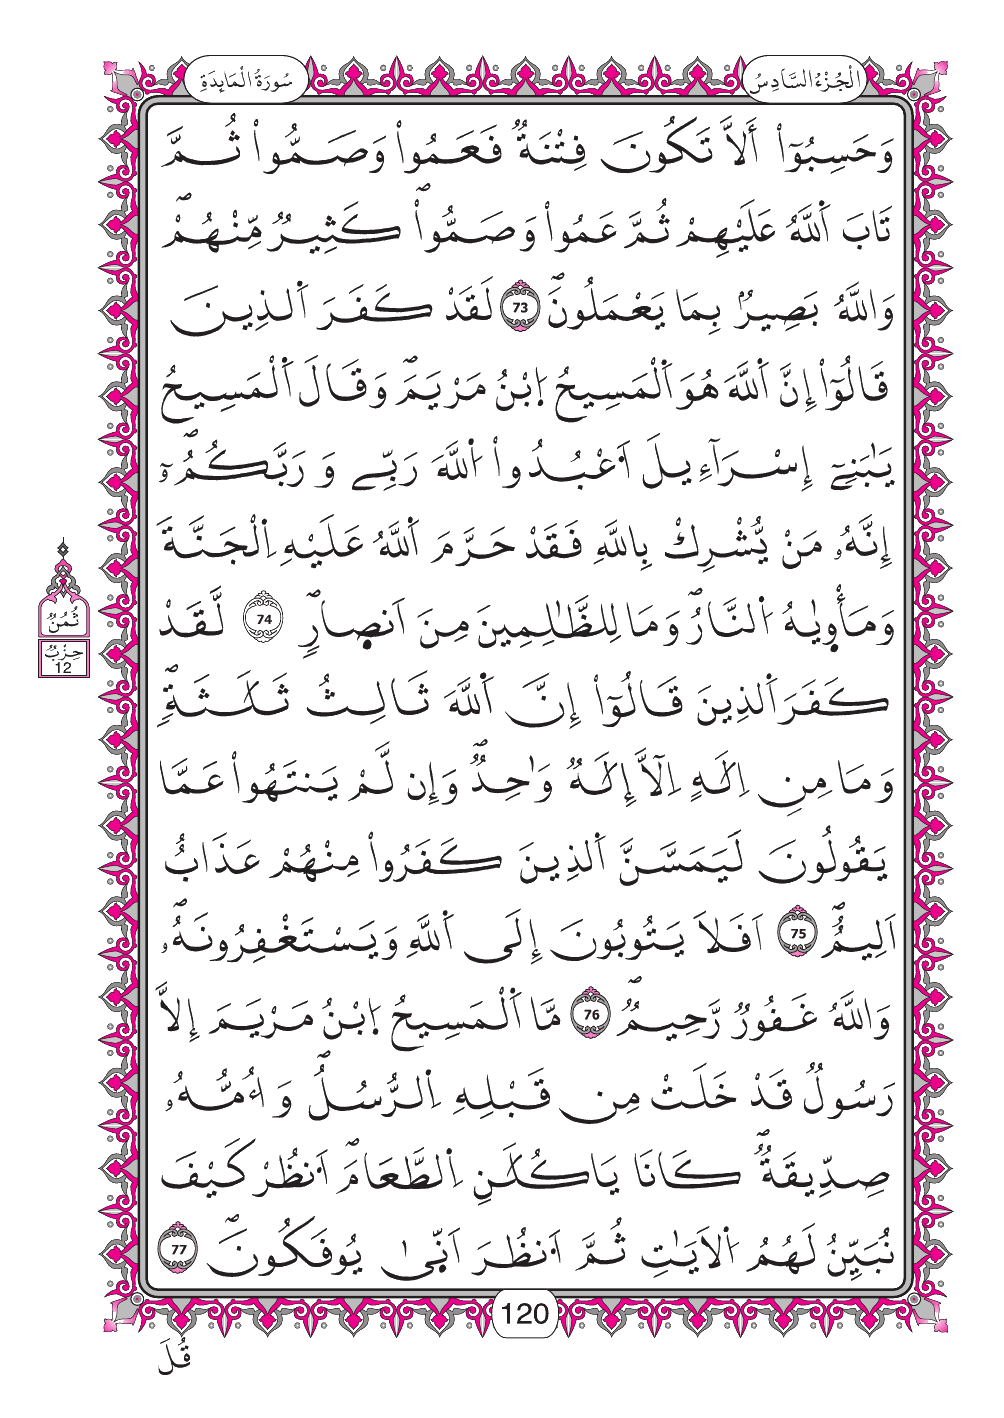 الْجُزْءُ السَّادِسُ
سُورَةُ الْمَائِدَةِ
وَحَسِبُوٓاْ أَلاَّ تَكُونَ فِتْنَةٌ فَعَمُواْ وَصَمُّواْ ثُمَّ
تَابَ اَللَّهُ عَلَيْهِمْ ثُمَّ عَمُواْ وَصَمُّواْ كَثِيرٌ مِّنْهُمْ
وَاللَّهُ بَصِيرٌ بِمَا يَعْمَلُونَ 73 لَقَدْ كَفَرَ اَلذِينَ
قَالُوٓاْ إِنَّ اَللَّهَ هُوَ اَلْمَسِيحُ اُبْنُ مَرْيَمَ وَقَالَ اَلْمَسِيحُ
يَٰبَنِےٓ إِسْرَآءِيلَ اَعْبُدُواْ اللَّهَ رَبِّے وَرَبَّكُمُۥٓ
إِنَّهُۥ مَنْ يُّشْرِكْ بِاللَّهِ فَقَدْ حَرَّمَ اَللَّهُ عَلَيْهِ اِلْجَنَّةَ
وَمَأْوِيٰهُ اُلنَّارُ وَمَا لِلظَّٰلِمِينَ مِنَ اَنصِارٍ 74 لَّقَدْ
ثُمُنٌ
حِزْبٌ
12
كَفَرَ اَلذِينَ قَالُوٓاْ إِنَّ اَللَّهَ ثَالِثُ ثَلَٰثَةٍ
وَمَا مِنِ اِلَٰهٍ اِلَّآ إِلَٰهٌ وَٰحِدٌ وَإِن لَّمْ يَنتَهُواْ عَمَّا
يَقُولُونَ لَيَمَسَّنَّ اَلذِينَ كَفَرُواْ مِنْهُمْ عَذَابٌ
اَلِيمٌ 75 اَفَلَا يَتُوبُونَ إِلَى اَللَّهِ وَيَسْتَغْفِرُونَهُۥ
وَاللَّهُ غَفُورٌ رَّحِيمٌ 76 مَّا اَلْمَسِيحُ اُبْنُ مَرْيَمَ إِلاَّ
رَسُولٌ قَدْ خَلَتْ مِن قَبْلِهِ اِلرُّسُلُ وَأُمُّهُۥ
صِدِّيقَةٌ كَانَا يَاكُلَٰنِ اِلطَّعَامَ اَنظُرْ كَيْفَ
نُبَيِّنُ لَهُمُ اُلَايَٰتِ ثُمَّ اَنظُرَ اَنّ۪ىٰ يُوفَكُونَ 77
120
قُلَ